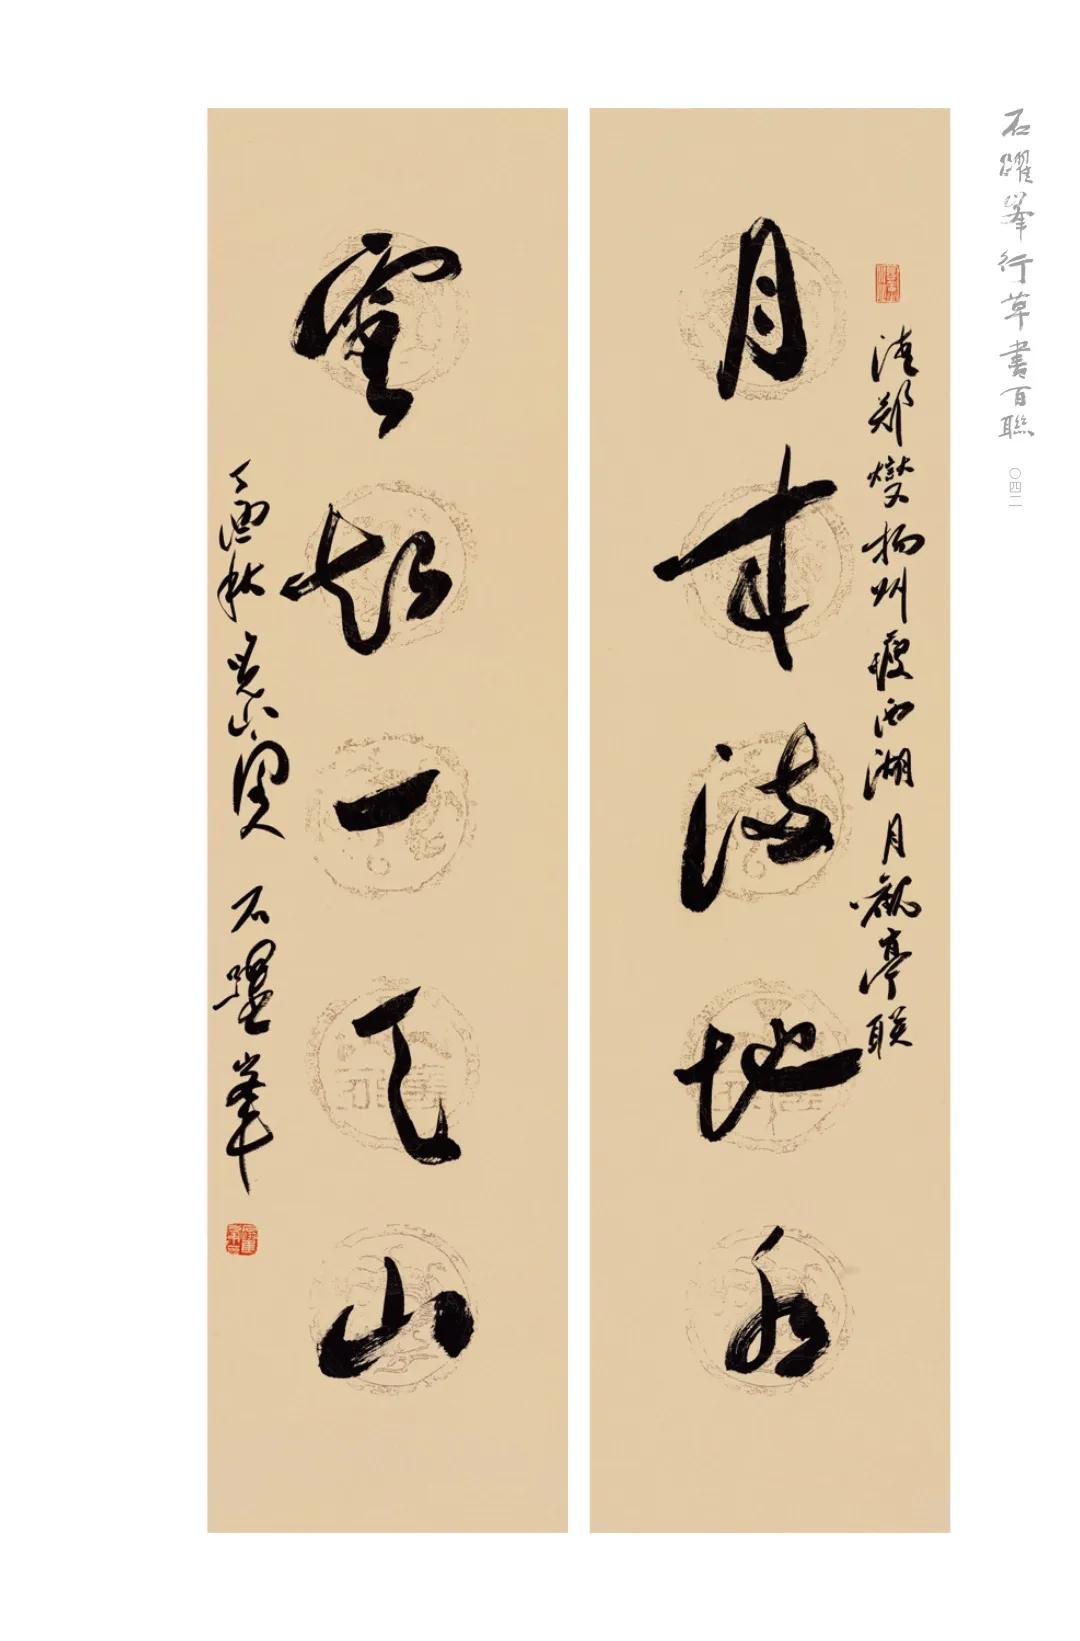 石躍峯行草書百聯
〇四二
清郑燮扬州瘦西湖月觀亭联
月来满地水
雲起一天山
丁酉秋
石躍峯